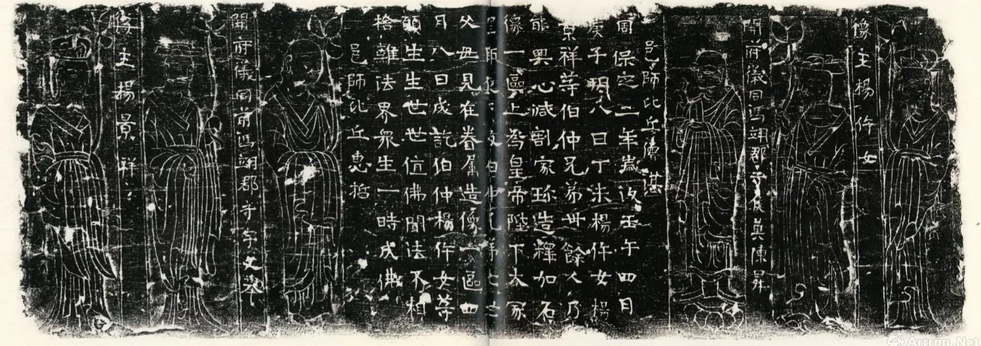 像主楊仵女
開府儀同馮翊郡守
邑師比丘
周保定二年歲次壬午四月
庚子朔八日丁未楊仵女楊
景祥等伯仲兄弟卅餘人乃
能興心減割家珍造釋加石
像一區上為皇帝陛下大冢
父母見在眷屬造像一區四
月八日成訖伯仲楊仵女等
願生生世世伉佛聞法不相
格離法界眾生一時成佛
邑師比丘惠哲
開府儀同前馮翊郡守宇文
像主楊景祥
Artron.Net